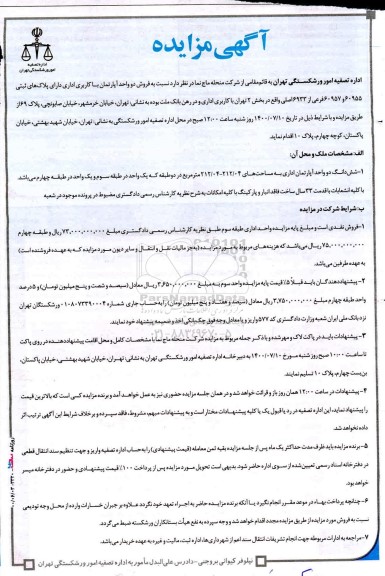 آگهی مزایده
اداره تصفیه
امور ورشکستگی تهران
اداره تصفیه امور ورشکستگی تهران به قائم‌مقامی از شرکت منحله ماچ نما در نظر دارد نسبت به فروش دو واحد آپارتمان با کاربری اداری دارای پلاک‌های ثبتی
۶۰۹۵۵ و ۶۰۹۵۷ فرعی از ۶۹۳۳ اصلی واقع در بخش ۲ تهران با کاربری اداری و در رهن بانک ملت بوده به نشانی: تهران، خیابان خرمشهر، خیابان صابونچی، پلاک ۶۹ از
طریق مزایده و با شرایط ذیل در تاریخ ۱۴۰۰/۰۷/۱۰ روز شنبه ساعت ۱۲:۰۰ صبح در محل اداره تصفیه امور ورشکستگی به نشانی: تهران، خیابان شهید بهشتی، خیابان
پاکستان، کوچه چهارم، پلاک ۱۰ اقدام نماید.
الف: مشخصات ملک و محل آن:
۱- شش‌دانگ دو واحد آپارتمان اداری به مساحت‌های ۲۱۲/۰۴-۲۱۲/۰۴ مترمربع در دو طبقه که یک واحد در طبقه سوم و یک واحد در طبقه چهارم می‌باشد.
با کلیه انشعابات با قدمت ۲۳ سال ساخت فاقد انبار و پارکینگ با کلیه امکانات به شرح نظریه کارشناس رسمی دادگستری مضبوط در پرونده موجود در شعبه
ب: شرایط شرکت در مزایده
۱- فروش نقدی است و مبلغ پایه مزایده واحد اداری طبقه سوم طبق نظریه کارشناس رسمی دادگستری مبلغ ۷۳,۰۰۰,۰۰۰,۰۰۰ ریال و طبقه چهارم
۷۵,۰۰۰,۰۰۰,۰۰۰ ریال می‌باشد که هزینه‌های مربوط به مورد مزایده (به‌جز مالیات نقل و انتقال و سایر دیون مورد مزایده که به عهده فروشنده است)
به عهده طرفین می‌باشد.
۲- پیشنهاددهندگان باید قبلاً ۵٪ قیمت پایه مزایده واحد سوم به مبلغ ۳,۶۵۰,۰۰۰,۰۰۰ ریال معادل (سیصد و شصت و پنج میلیون تومان) و ۵ درصد
واحد طبقه چهارم مبلغ ۳,۷۵۰,۰۰۰,۰۰۰ ریال معادل (سیصد و هفتاد و پنج میلیون تومان) را به حساب جاری شماره ورشکستگان تهران
نزد بانک ملی ایران شعبه وزارت دادگستری کد ۵۷۷ واریز و یا معادل وجه فوق چک بانکی اخذ و ضمیمه پیشنهاد خود نمایند.
۳- پیشنهادات باید در پاکت لاک و مهر شده و با ذکر جمله مربوط به مزایده شرکت منحله ماچ نما با مشخصات کامل و محل اقامت پیشنهاددهنده در روی پاکت
تا ساعت ۱۰:۰۰ صبح روز شنبه مورخ ۱۴۰۰/۰۷/۱۰ به دبیرخانه اداره تصفیه امور ورشکستگی تهران به نشانی: تهران، خیابان شهید بهشتی، خیابان پاکستان،
بن‌بست چهارم، پلاک ۱۰ تسلیم نمایند.
۴- پیشنهادات در ساعت ۱۲:۰۰ همان روز باز و قرائت خواهد شد و در همان جلسه مزایده حضوری نیز به عمل خواهد آمد و برنده مزایده کسی است که بالاترین قیمت
را پیشنهاد نماید، این اداره تصفیه در رد یا قبول یک یا کلیه پیشنهادات مختار است و به پیشنهادات مبهم، مشروط، فاقد سپرده و برخلاف شرایط این آگهی ترتیب اثر
داده نخواهد شد.
۵- برنده مزایده باید ظرف مدت حداکثر یک ماه پس از جلسه مزایده بقیه ثمن معامله (قیمت پیشنهادی) را به حساب اداره تصفیه واریز و جهت تنظیم سند انتقال قطعی
در دفترخانه اسناد رسمی تعیین شده از سوی اداره حاضر شود. بدیهی است تحویل مورد مزایده پس از پرداخت ۱۰۰٪ قیمت پیشنهادی و حضور در دفترخانه میسر
خواهد بود.
۶- چنانچه پرداخت بهاء در موعد مقرر انجام نگیرد یا آنکه برنده مزایده حاضر به اجراء تعهد خود نگردد علاوه بر جبران خسارات وارده از محل وجه تودیعی
نسبت به فروش مورد مزایده از طریق مزایده مجدد اقدام خواهد شد و وجه سپرده به نفع هیأت بستانکاران ورشکسته ضبط می‌گردد.
۷- مراجعه به ادارات مربوطه جهت انجام تشریفات انتقال سند اعم از شهرداری‌ها، اداره ثبت، مالیات و غیره به عهده خریدار می‌باشد.
نیلوفر کیوانی بروجنی - دادرس علی‌البدل مأمور به اداره تصفیه امور ورشکستگی تهران